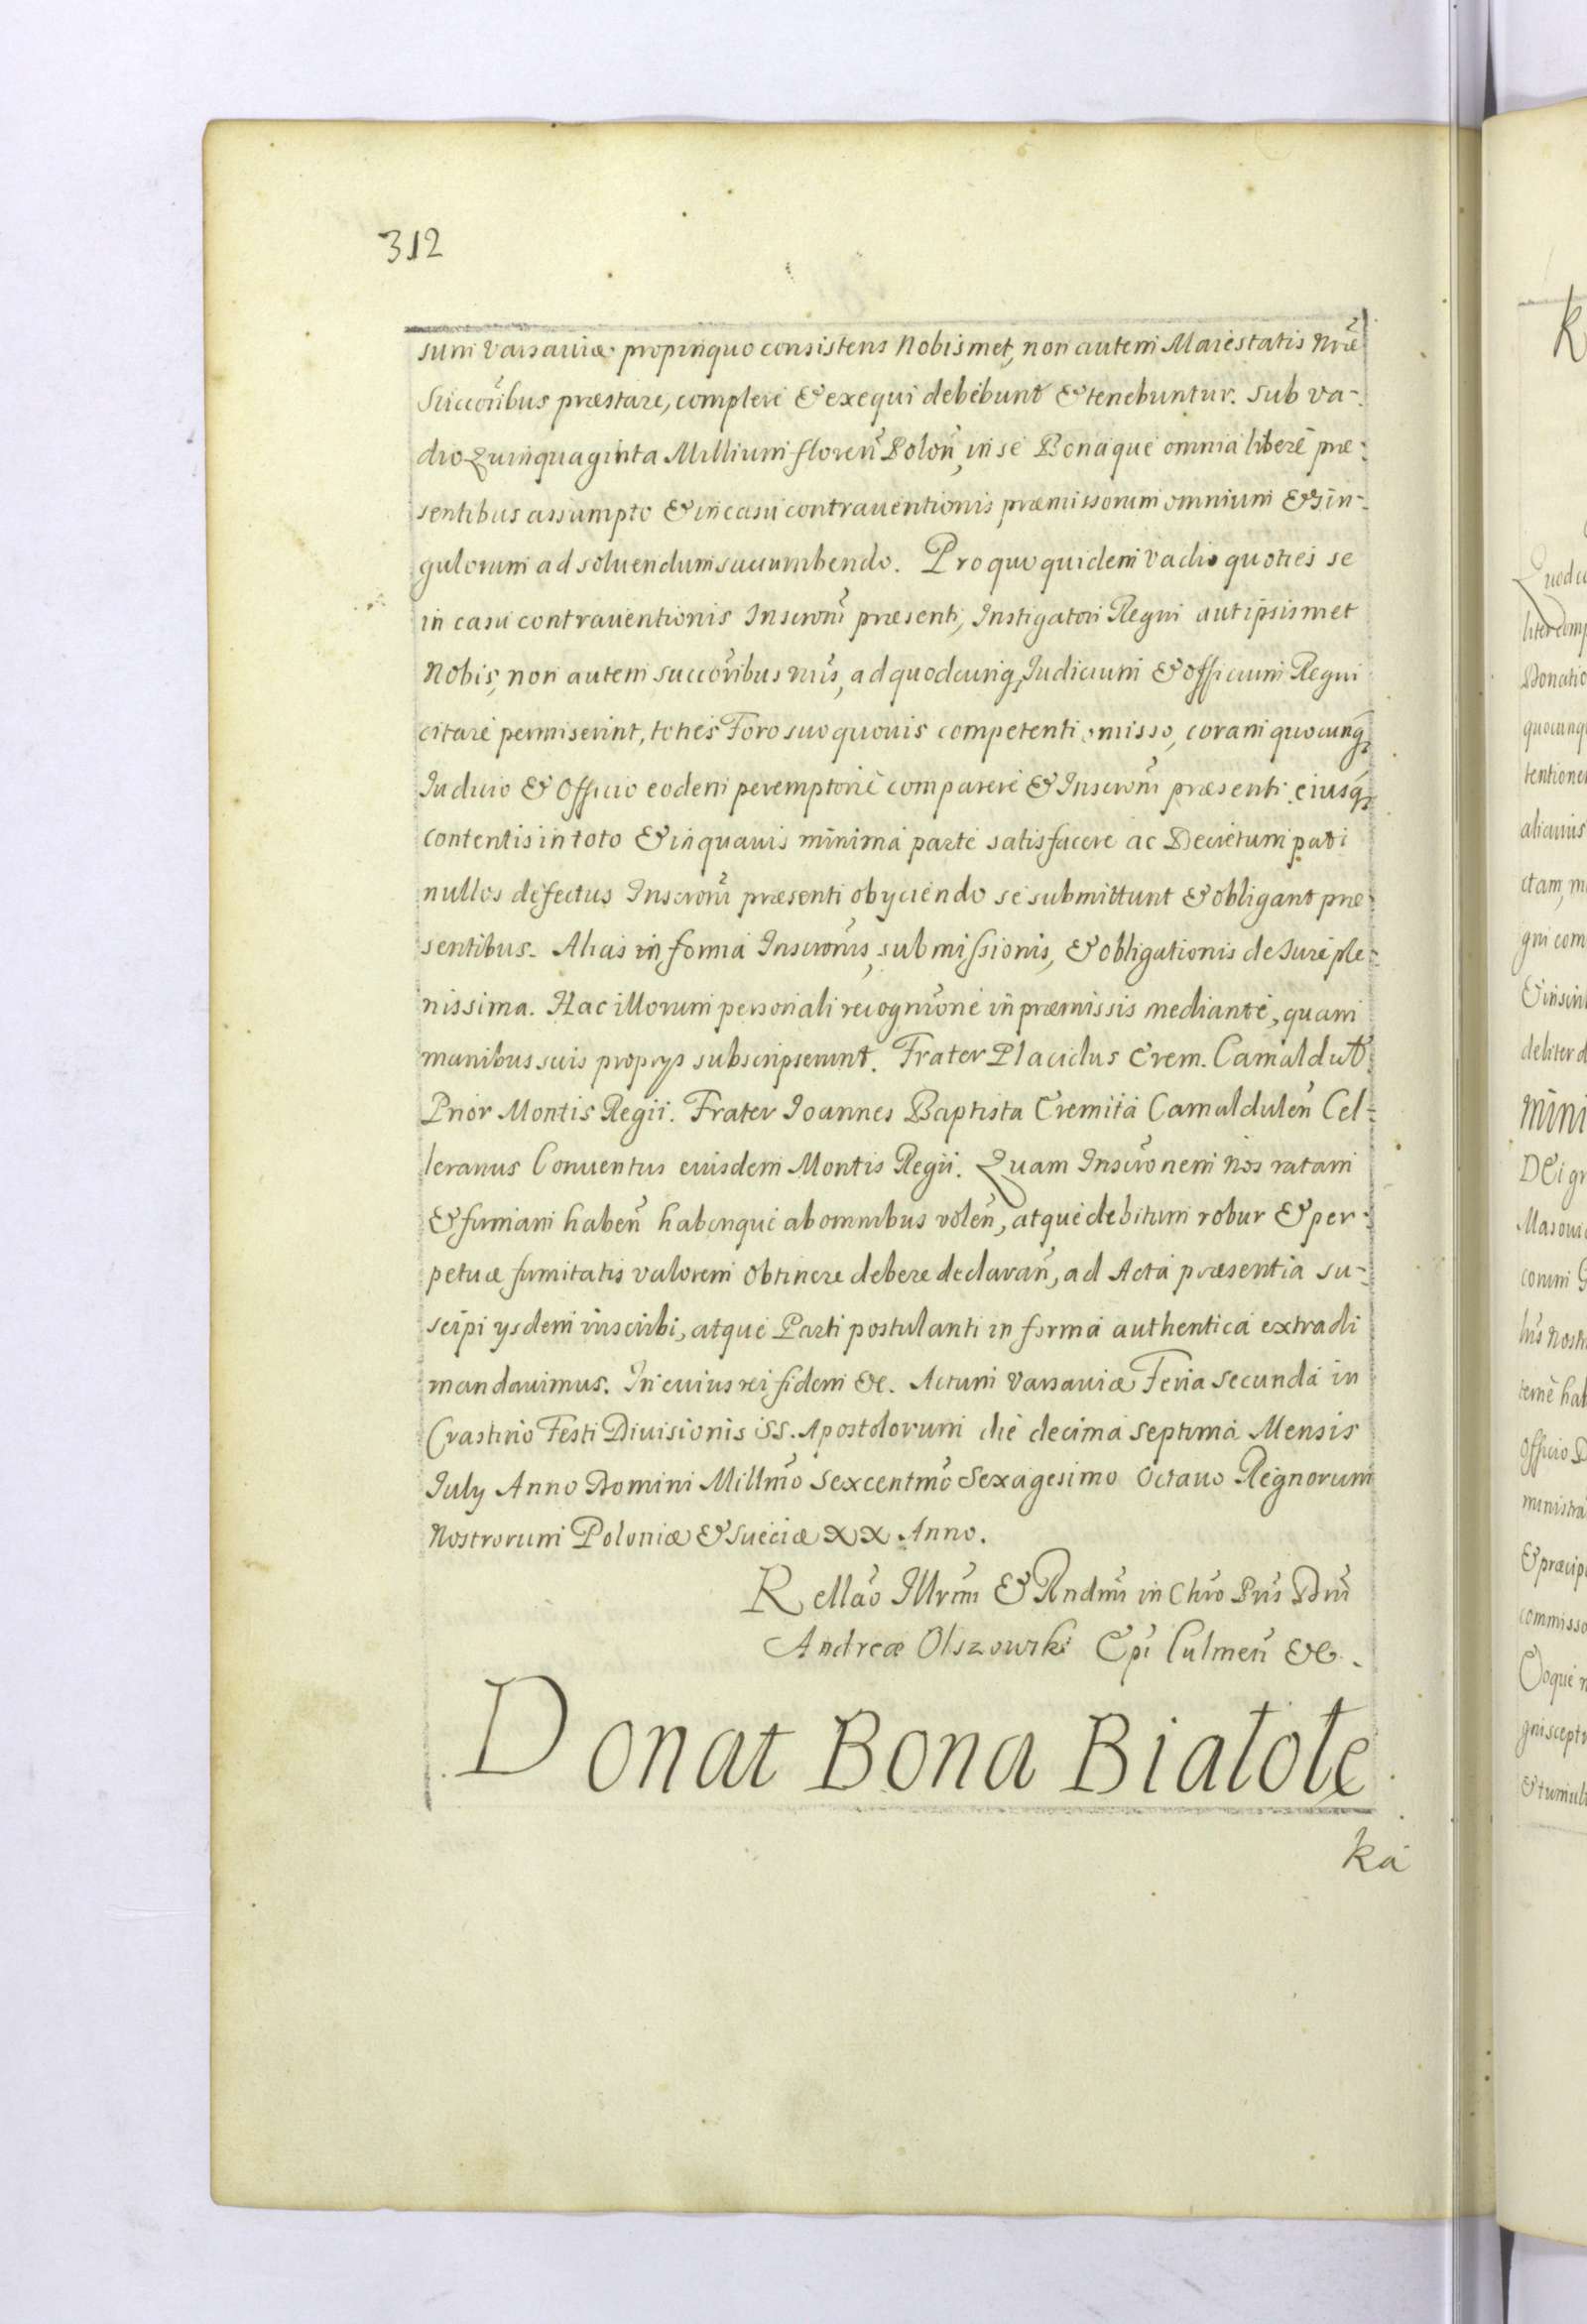 312
sum Varsaviæ propinquo consistens Nobismet, non autem Maiestatis Nr̃æ
Succor̃ibus præstare, complere & exequi debebunt & tenebuntur. Sub va-
dio Quinquaginta Millium floreñ Poloñ, in se Bonaque omnia liberè præ-
sentibus assumpto & in casu contrauentionis præmissorum omnium & sin-
gulorum ad soluendum sucumbendo. Pro quo quidem vadio quoties se
in casu contrauentionis Inscr̃oni præsenti, Instigatori Regni aut ipsismet
Nobis, non autem succor̃ibus nr̃is, ad quodcunq, Iudicium & Officium Regni
citare permiserint, toties Foro suo quouis competenti omisso, coram quocunq,
Iudicio & Officio eodem peremptoriè comparere & Inscr̃oni præsenti eiusq,
contentis in toto & in quauis minima parte satisfacere ac Decretum pati
nullos defectus Inscr̃oni præsenti obyciendo se submittunt & obligant præ-
sentibus. Alias in forma Inscr̃onis, submissionis, & obligationis de Iure ple-
nissima. Hac illorum personali recognĩone in præmissis mediante, quam
manibus suis proprys subscripserunt. Frater Placidus Erem. Camaldul.
Prior Montis Regii. Frater Ioannes Baptista Eremita Camalduleñ Cel-
leranus Conuentus eiusdem Montis Regii. Quam Inscr̃onem Nos ratam
& firmam habeñ haberique ab omnibus voleñ, atque debitum robur & per-
petuæ firmitatis valorem obtinere debere declarañ, ad Acta præsentia su-
scipi ysdem inscribi, atque Parti postulanti in forma authentica extradi
mandauimus. In cuius rei fidem &c. Actum Varsauiæ Feria secunda in
Crastino Festi Diuisionis SS. Apostolorum die decima septima Mensis
July Anno Domini Millm̃o Sexcentm̃o Sexagesimo Octauo Regnorum
Nostrorum Poloniæ & Sueciæ XX Anno.
Rellãõ Illr̃mi & Rndm̃i in Chr̃o Pr̃is Dñi
Andreæ Olszowski Ep̃i Culmeñ &c.
Donat Bona Białołę
ka